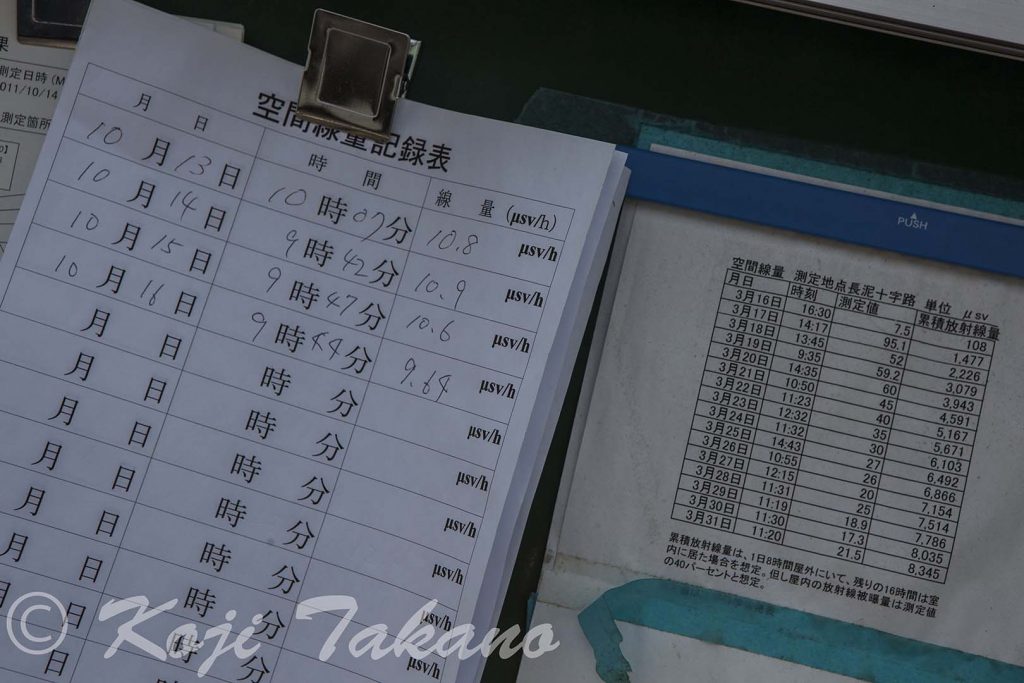 果
測定日時 (M
011/10/14
測定箇所
空間線量記録表
月 日 時 間 線 量 (μsv/h)
10 月 13 日 10 時 07 分 10.8 μsv/h
10 月 14 日 9 時 42 分 10.9 μsv/h
10 月 15 日 9 時 47 分 10.6 μsv/h
10 月 16 日 9 時 44 分 9.64 μsv/h
月 日 時 分 μsv/h
月 日 時 分 μsv/h
月 日 時 分 μsv/h
月 日 時 分 μsv/h
月 日 時 分 μsv/h
月 日 時 分 μsv/h
月 日 時 分 μsv/h
PUSH
空間線量 測定地点長泥十字路 単位 μsv
月日 時刻 測定値 累積放射線量
3月16日 16:30 7.5 108
3月17日 14:17 95.1 1,477
3月18日 13:45 52 2,226
3月19日 9:35 59.2 3,079
3月20日 14:35 60 3,943
3月21日 10:50 45 4,591
3月22日 11:23 40 5,167
3月23日 12:32 35 5,671
3月24日 11:32 30 6,103
3月25日 14:43 27 6,492
3月26日 10:55 26 6,866
3月27日 12:15 20 7,154
3月28日 11:31 25 7,514
3月29日 11:19 18.9 7,786
3月30日 11:30 17.3 8,035
3月31日 11:20 21.5 8,345
累積放射線量は、1日8時間屋外にいて、残りの16時間は室
内に居た場合を想定。但し屋内の放射線被曝量は測定値
の40パーセントと想定。
© Koji Takano